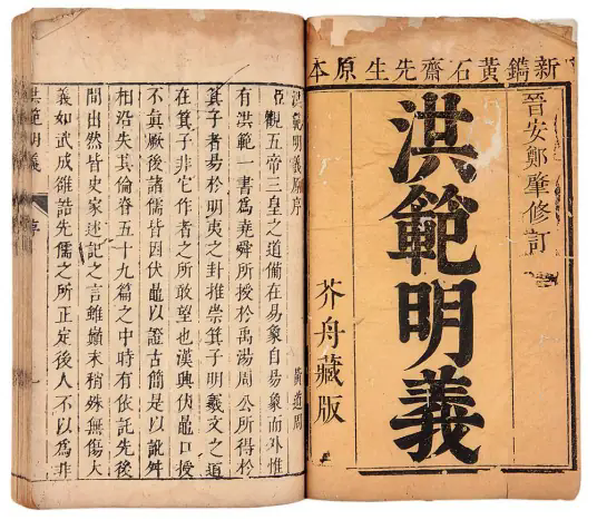 新鐫黃石齋先生原本
晉安鄭肇修訂
洪範明義
芥舟藏版
洪範明義原序 黃道周
觀五帝三皇之道備在易象自易象而外惟
有洪範一書爲堯舜所授於禹湯周公所得於
箕子者易於明夷之卦推崇箕子明羲文之道
在箕子非它作者之所敢望也漢興伏黽口授
不眞厥後諸儒皆因伏黽以證古簡是以訛舛
相沿失其倫脊五十九篇之中時有依託先後
間出然皆史家述記之言雖顛末稍殊無傷大
義如武成雒誥先儒之所正定後人不以爲非
洪範明義 序